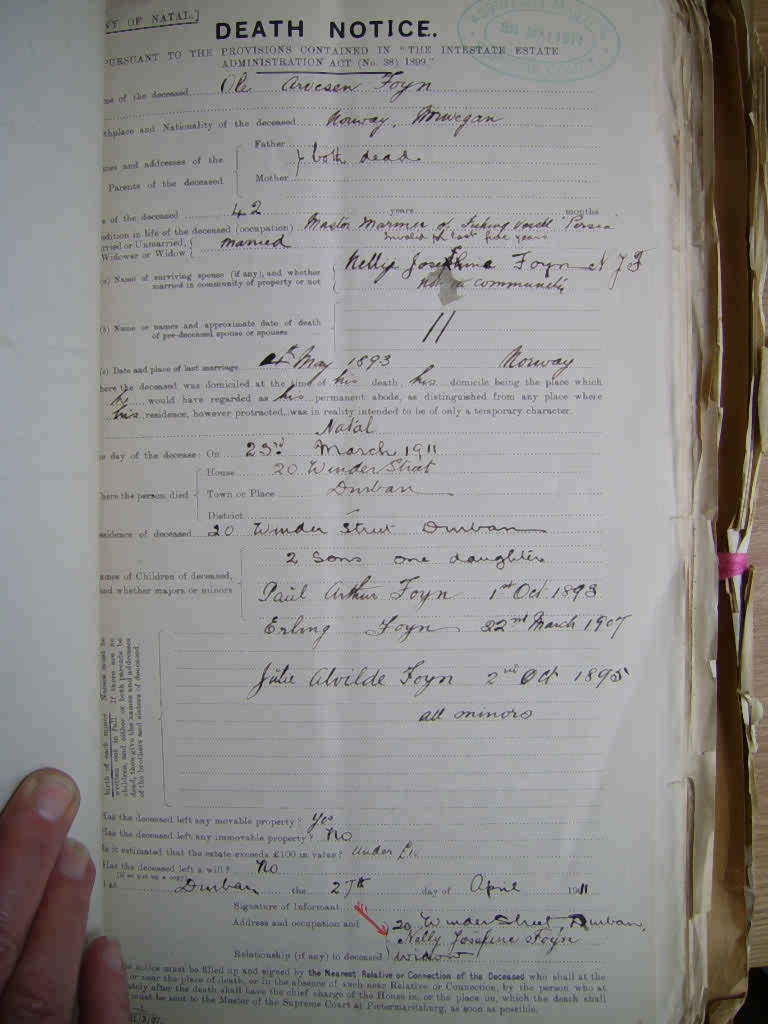 NY OF NATAL.]
DEATH NOTICE.
PURSUANT TO THE PROVISIONS CONTAINED IN "THE INTESTATE ESTATE
ADMINISTRATION ACT (No. 38) 1899."
me of the deceased Ole Arvesen Foyn
thplace and Nationality of the deceased Norway, Norwegan
Father
mes and addresses of the both dead
Parents of the deceased
Mother
of the deceased 42 years months
ndition in life of the deceased (occupation) Master Mariner of Fishing Vessel Persia
Invalid for last five years
rried or Unmarried, married
Widower or Widow
(a) Name of surviving spouse (if any), and whether Nelly Josephine Foyn N J F
married in community of property or not not in community
(b) Name or names and approximate date of death
of pre-deceased spouse or spouses
(c) Date and place of last marriage May 1893 Norway
here the deceased was domiciled at the time of his death, his domicile being the place which
he would have regarded as his permanent abode, as distinguished from any place where
his residence, however protracted, was in reality intended to be of only a temporary character.
Natal
e day of the decease: On 23rd March 1911
House 20 Winder Street
here the person died Town or Place Durban
District
esidence of deceased 20 Winder Street Durban
2 Sons one daughter
ames of Children of deceased,
nd whether majors or minors Paul Arthur Foyn 1st Oct 1893
Erling Foyn 22nd March 1907
Julie Alvilde Foyn 2nd Oct 1895
all minors
birth of each minor. Names must be
written out in full. If there are no
children, and either or both parents be
dead, then give the names and addresses
of the brothers and sisters of deceased.
Has the deceased left any movable property? Yes
Has the deceased left any immovable property? No
Is it estimated that the estate exceeds £100 in value? under
Has the deceased left a will? No
at Durban the 27th day of April 1911
Signature of Informant
Address and occupation and 20 Winder Street Durban,
Nelly Josefine Foyn
Relationship (if any) to deceased widow
notice must be filled up and signed by the Nearest Relative or Connection of the Deceased who shall at the
or near the place of death, or in the absence of such near Relative or Connection, by the person who at
ately after the death shall have the chief charge of the House in, or the place on, which the death shall
must be sent to the Master of the Supreme Court at Pietermaritzburg, as soon as possible.